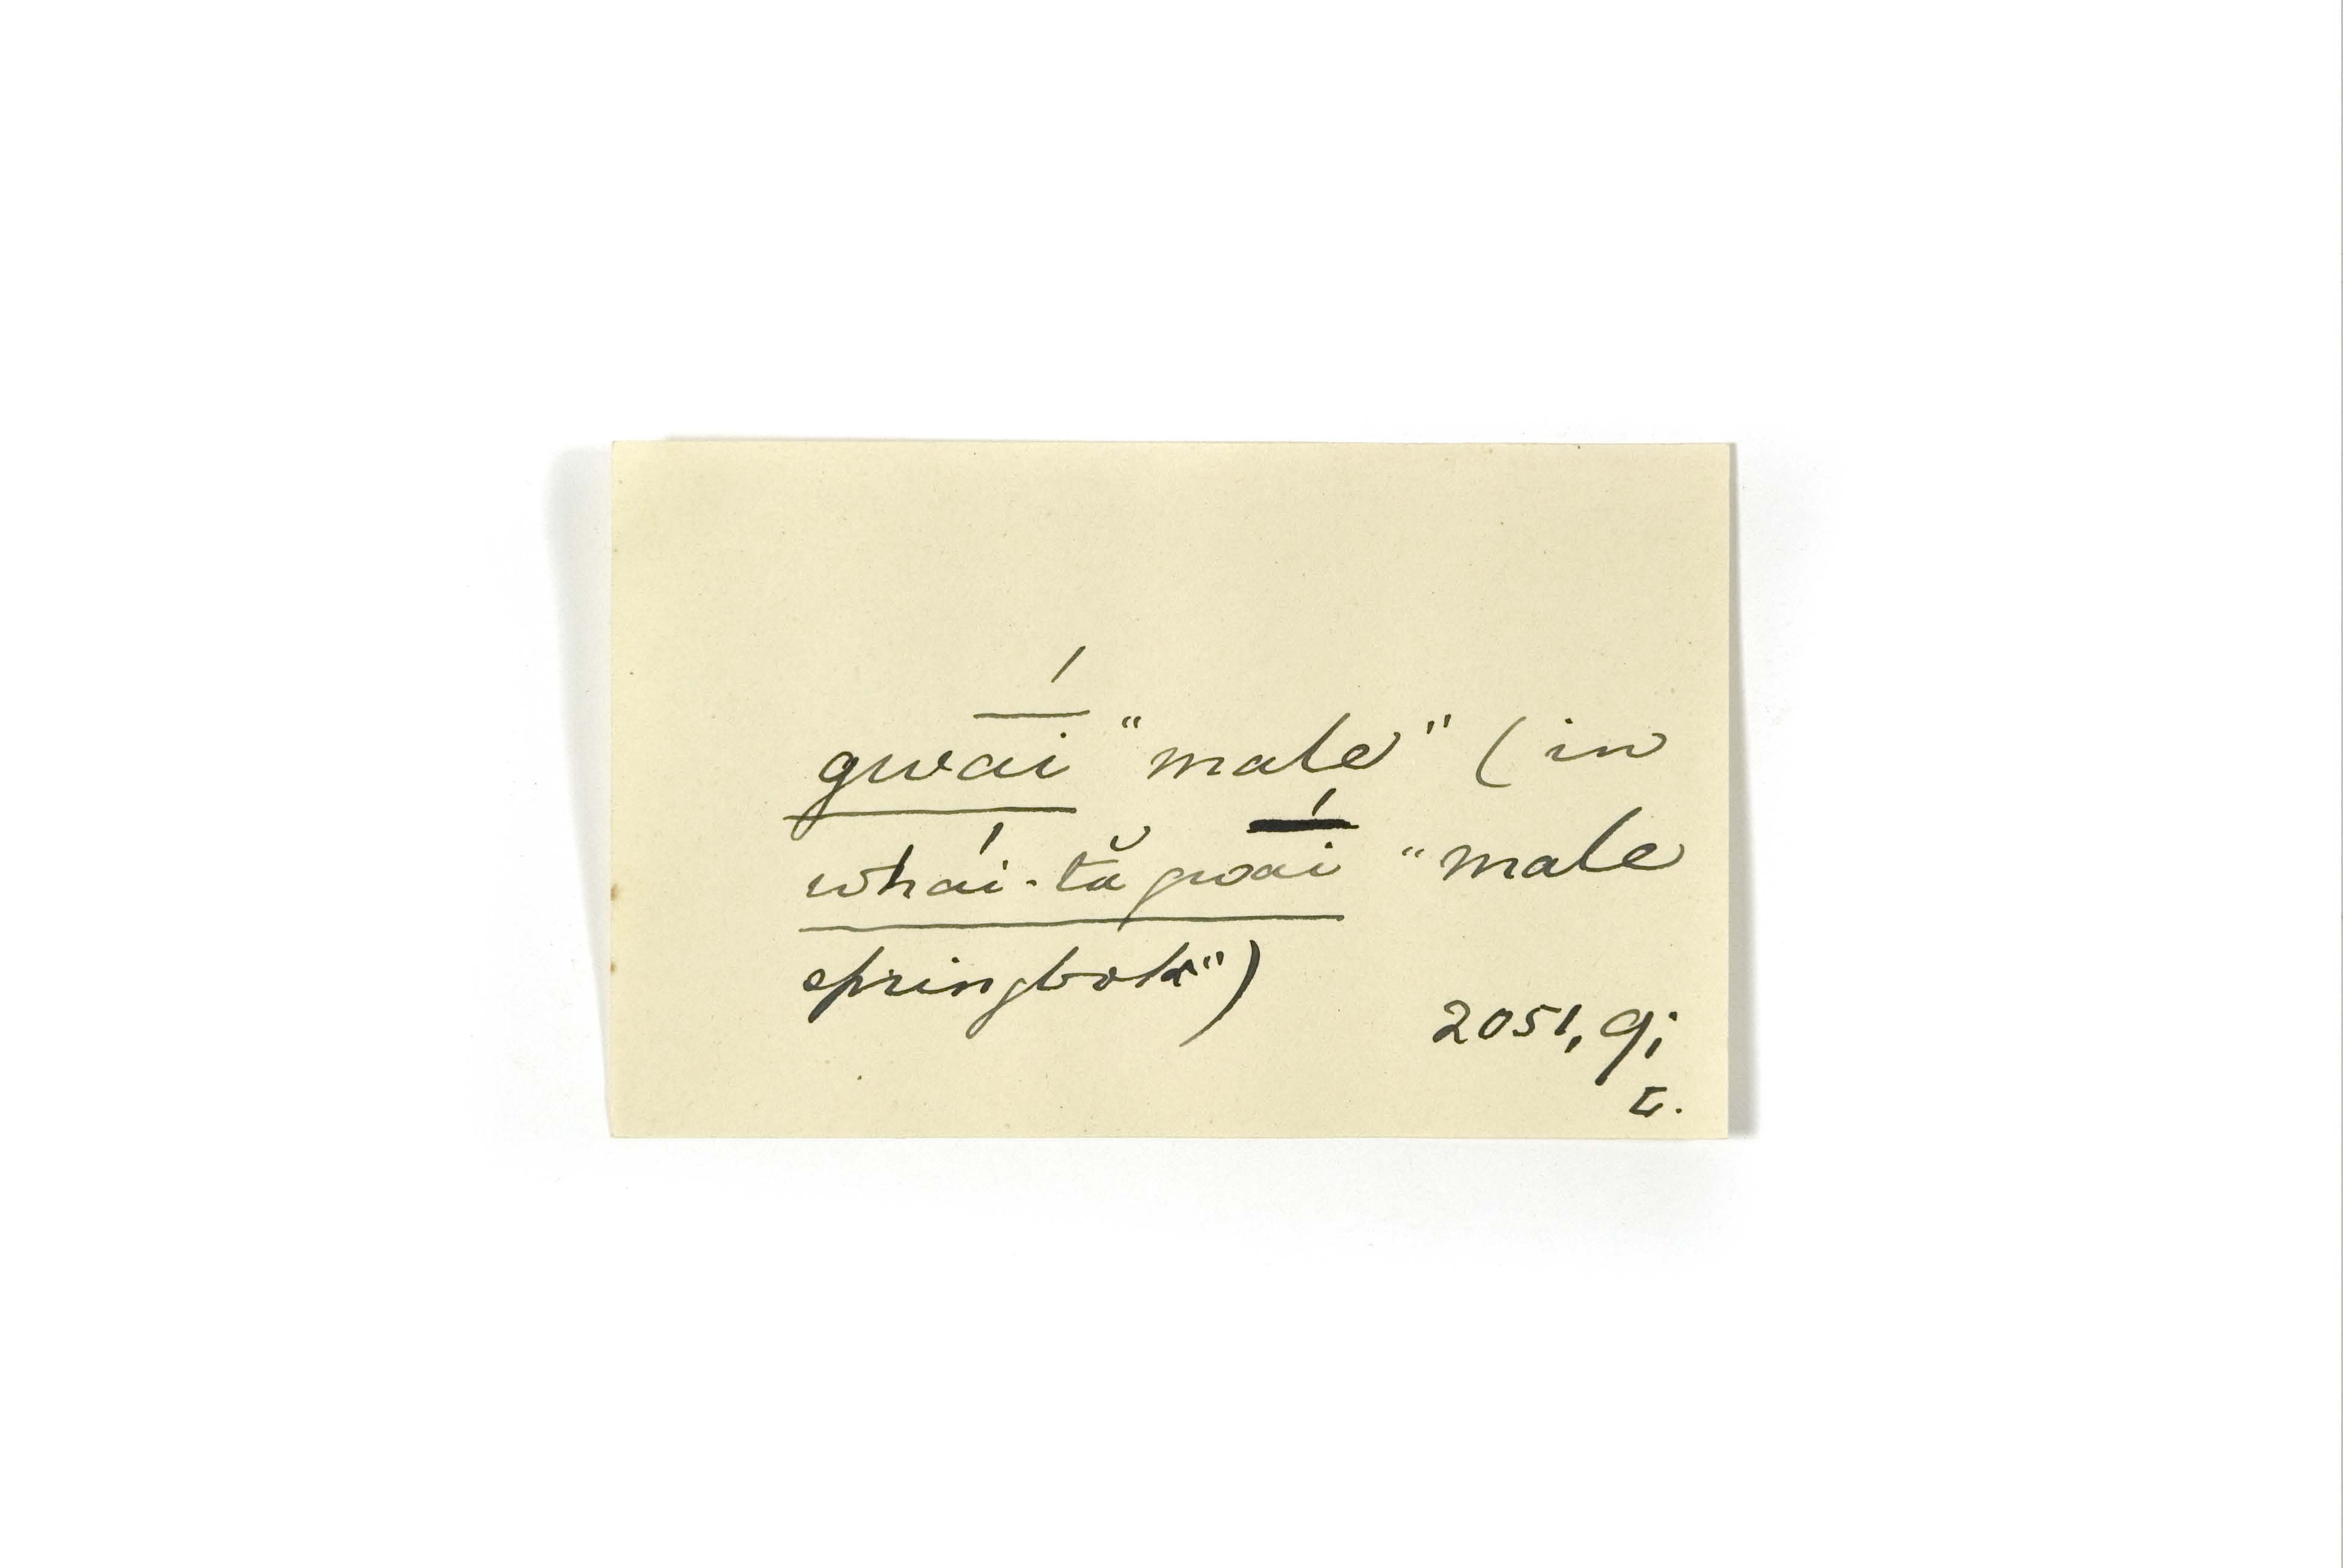 gwā́i "male" (in
whaí-tă gwā́i "male
springbok")
2051, 9;
L.